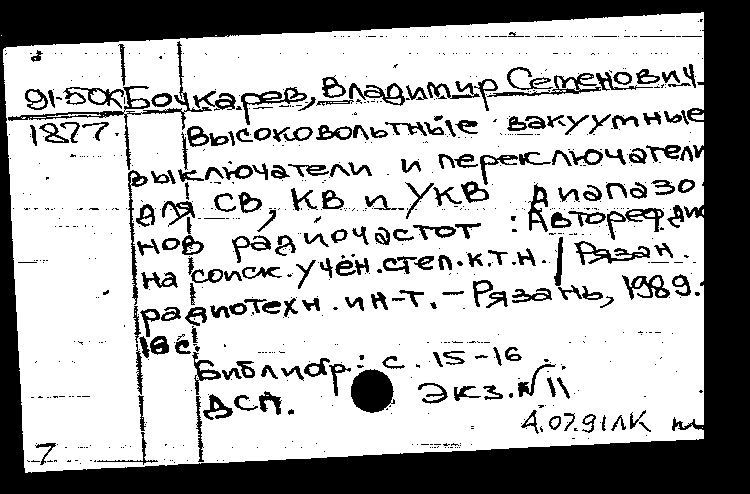 91-50к Бочкарев, Владимир Семенович
1877. Высоковольтные вакуумные
выключатели и переключатели
для СВ, КВ и УКВ диапазо-
нов радиочастот : Автореф. дис
на соиск. учен. степ. к.т.н. / Рязан.
радиотехн. ин-т. - Рязань, 1989.-
16 с.
Библиогр.: с. 15-16.
ДСП. Экз. № 11
4.07.91 ЛК
7